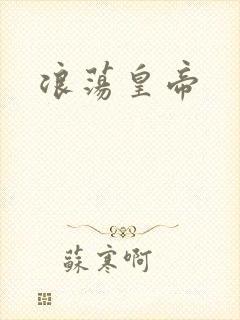 浪蕩皇帝
蘇寒啊